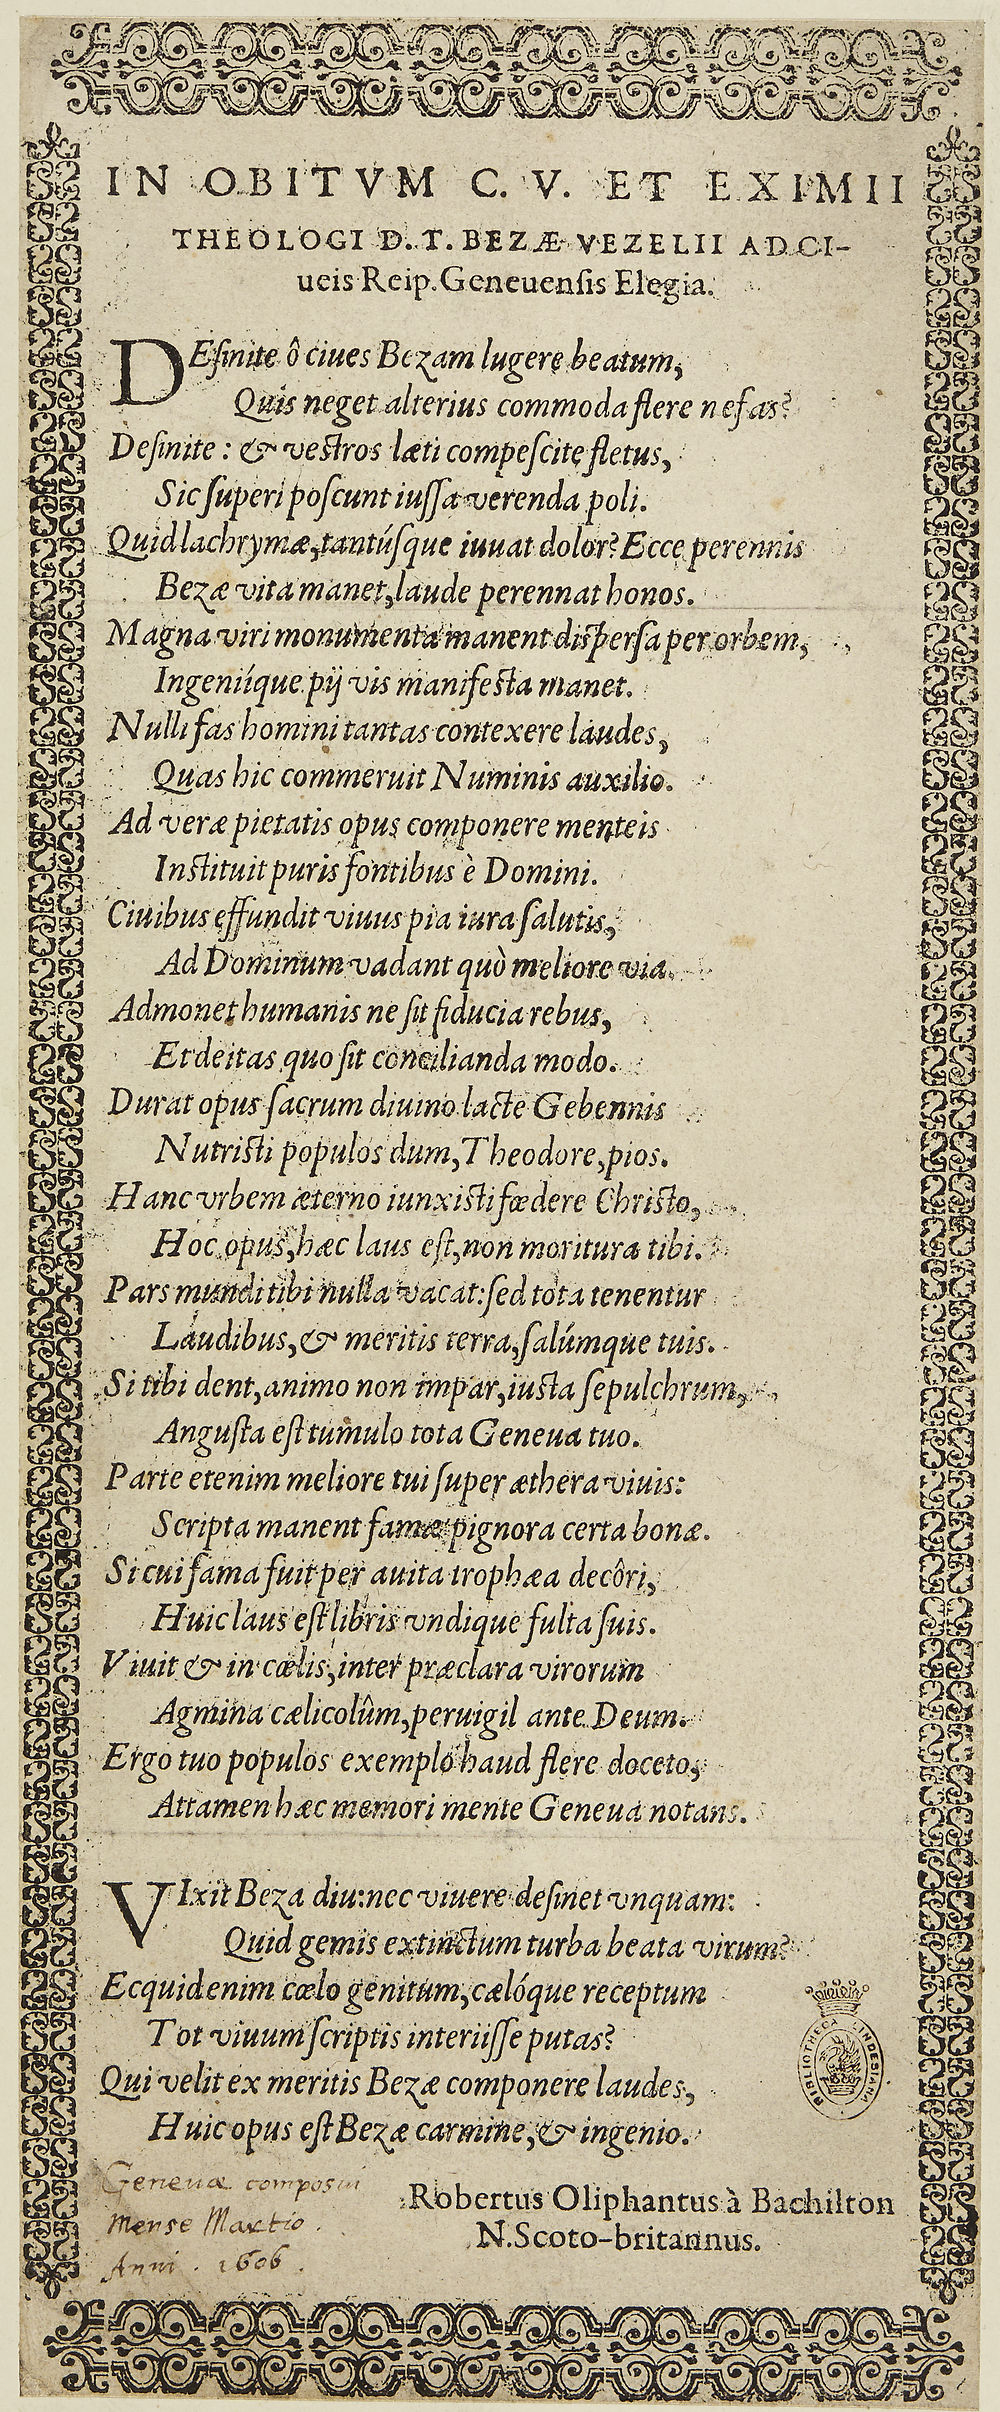 IN OBITVM C. V. ET EXIMII
THEOLOGI D. T. BEZÆ VEZELII AD CI-
ueis Reip. Geneuenſis Elegia.
DEſinite ô ciues Bezam lugere beatum,
Quis neget alterius commoda flere nefas?
Deſinite: & veſtros læti compeſcite fletus,
Sic ſuperi poſcunt iuſſa verenda poli.
Quid lachrymæ, tantúſque iuuat dolor? Ecce perennis
Bezæ vita manet, laude perennat honos.
Magna viri monumenta manent diſperſa per orbem,
Ingeniíque pij vis manifeſta manet.
Nulli fas homini tantas contexere laudes,
Quas hic commeruit Numinis auxilio.
Ad veræ pietatis opus componere menteis
Inſtituit puris fontibus è Domini.
Ciuibus effundit viuus pia iura ſalutis,
Ad Dominum vadant quò meliore via.
Admonet humanis ne ſit fiducia rebus,
Et deitas quo ſit concilianda modo.
Durat opus ſacrum diuino lacte Gebennis
Nutriſti populos dum, Theodore, pios.
Hanc vrbem æterno iunxiſti fœdere Chriſto,
Hoc opus, hæc laus eſt, non moritura tibi.
Pars mundi tibi nulla vacat: ſed tota tenentur
Laudibus, & meritis terra, ſalúmque tuis.
Si tibi dent, animo non impar, iuſta ſepulchrum,
Anguſta eſt tumulo tota Geneua tuo.
Parte etenim meliore tui ſuper æthera viuis:
Scripta manent famæ pignora certa bonæ.
Si cui fama fuit per auita trophæa decôri,
Huic laus eſt libris vndique fulta ſuis.
Viuit & in cœlis, inter præclara virorum
Agmina cælicolûm, peruigil ante Deum.
Ergo tuo populos exemplo haud flere doceto,
Attamen hæc memori mente Geneua notans.
VIxit Beza diu: nec viuere deſinet vnquam:
Quid gemis extinctum turba beata virum?
Ecquid enim cœlo genitum, cælóque receptum
Tot viuum ſcriptis interiiſſe putas?
Qui velit ex meritis Bezæ componere laudes,
Huic opus eſt Bezæ carmine, & ingenio.
BIBLIOTHECA LINDESIANA
Robertus Oliphantus à Bachilton
N. Scoto-britannus.
Geneuæ composui
Mense Martio.
Anni. 1606.